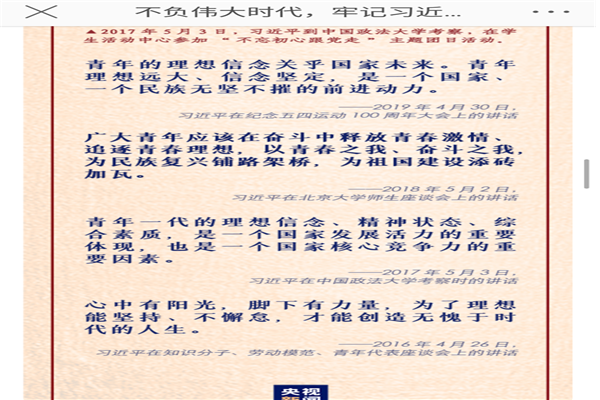 不负伟大时代，牢记习近...
▲2017年5月3日，习近平到中国政法大学考察，在学
生活动中心参加“不忘初心跟党走”主题团日活动。
青年的理想信念关乎国家未来。青年
理想远大、信念坚定，是一个国家、
一个民族无坚不摧的前进动力。
——2019年4月30日，
习近平在纪念五四运动100周年大会上的讲话
广大青年应该在奋斗中释放青春激情、
追逐青春理想，以青春之我、奋斗之我，
为民族复兴铺路架桥，为祖国建设添砖
加瓦。
——2018年5月2日，
习近平在北京大学师生座谈会上的讲话
青年一代的理想信念、精神状态、综
合素质，是一个国家发展活力的重要
体现，也是一个国家核心竞争力的重
要因素。
——2017年5月3日，
习近平在中国政法大学考察时的讲话
心中有阳光，脚下有力量，为了理想
能坚持、不懈怠，才能创造无愧于时
代的人生。
——2016年4月26日，
习近平在知识分子、劳动模范、青年代表座谈会上的讲话
央视
新闻